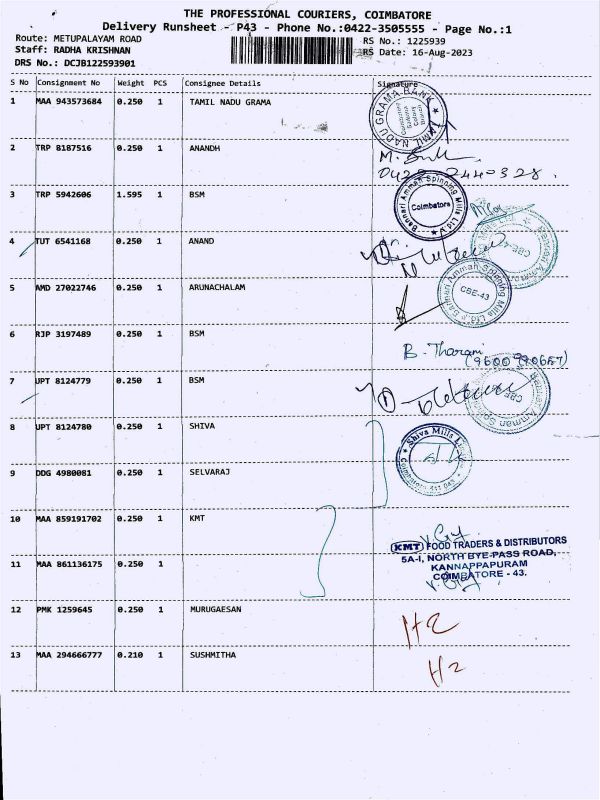 THE PROFESSIONAL COURIERS, COIMBATORE
Delivery Runsheet - P43 - Phone No.:0422-3505555 - Page No.:1
Route: METUPALAYAM ROAD RS No.: 1225939
Staff: RADHA KRISHNAN RS Date: 16-Aug-2023
DRS No.: DCJB122593901
S No Consignment No Weight PCS Consignee Details Signature
1 MAA 943573684 0.250 1 TAMIL NADU GRAMA
TAMIL NADU GRAMA BANK
2 TRP 8187516 0.250 1 ANANDH
3 TRP 5942606 1.595 1 BSM
Bannari Amman Spinning Mills Ltd
Coimbatore
4 TUT 6541168 0.250 1 ANAND
5 AMD 27022746 0.250 1 ARUNACHALAM
Bannari Amman Spinning Mills Ltd
CBE-43
6 RJP 3197489 0.250 1 BSM
B. Tharani
7 UPT 8124779 0.250 1 BSM
8 UPT 8124780 0.250 1 SHIVA
Shiva Mills
9 DDG 4980081 0.250 1 SELVARAJ
10 MAA 859191702 0.250 1 KMT
KMT FOOD TRADERS & DISTRIBUTORS
5A-I, NORTH BYE-PASS ROAD,
KANNAPPAPURAM
COIMBATORE - 43.
11 MAA 861136175 0.250 1
12 PMK 1259645 0.250 1 MURUGAESAN
H2
13 MAA 294666777 0.210 1 SUSHMITHA
H2